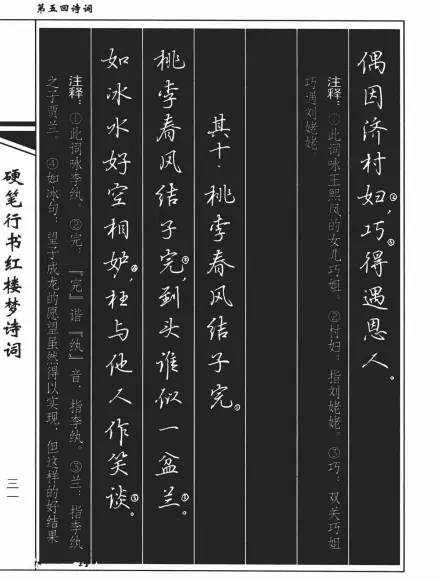 第五回诗词
偶因济村妇②,巧③得遇恩人。
注释:①此词咏王熙凤的女儿巧姐。②村妇:指刘姥姥。③巧:双关巧姐
巧遇刘姥姥。
其十·桃李春风结子完①
桃李春风结子完②,到头谁似一盆兰③。
如冰水好空相妒④,枉与他人作笑谈⑤。
注释:①此词咏李纨。②完:『完』谐『纨』音,指李纨。③兰:指李纨
之子贾兰。④如冰句:望子成龙的愿望虽然得以实现,但这样的好结果
硬笔行书红楼梦诗词
三一